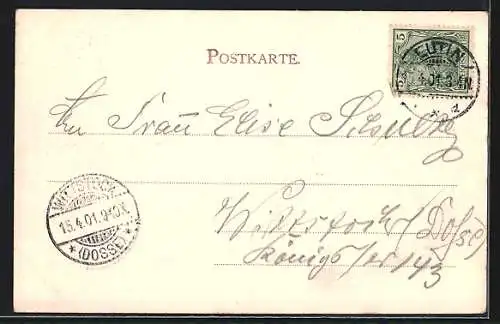 POSTKARTE.
5
EUTIN
4.01.
An Frau Elise Schultz
WITTSTOCK
15.4.01.9-10V.
*(DOSSE)*
Wittstock (Dosse)
Königstr 143